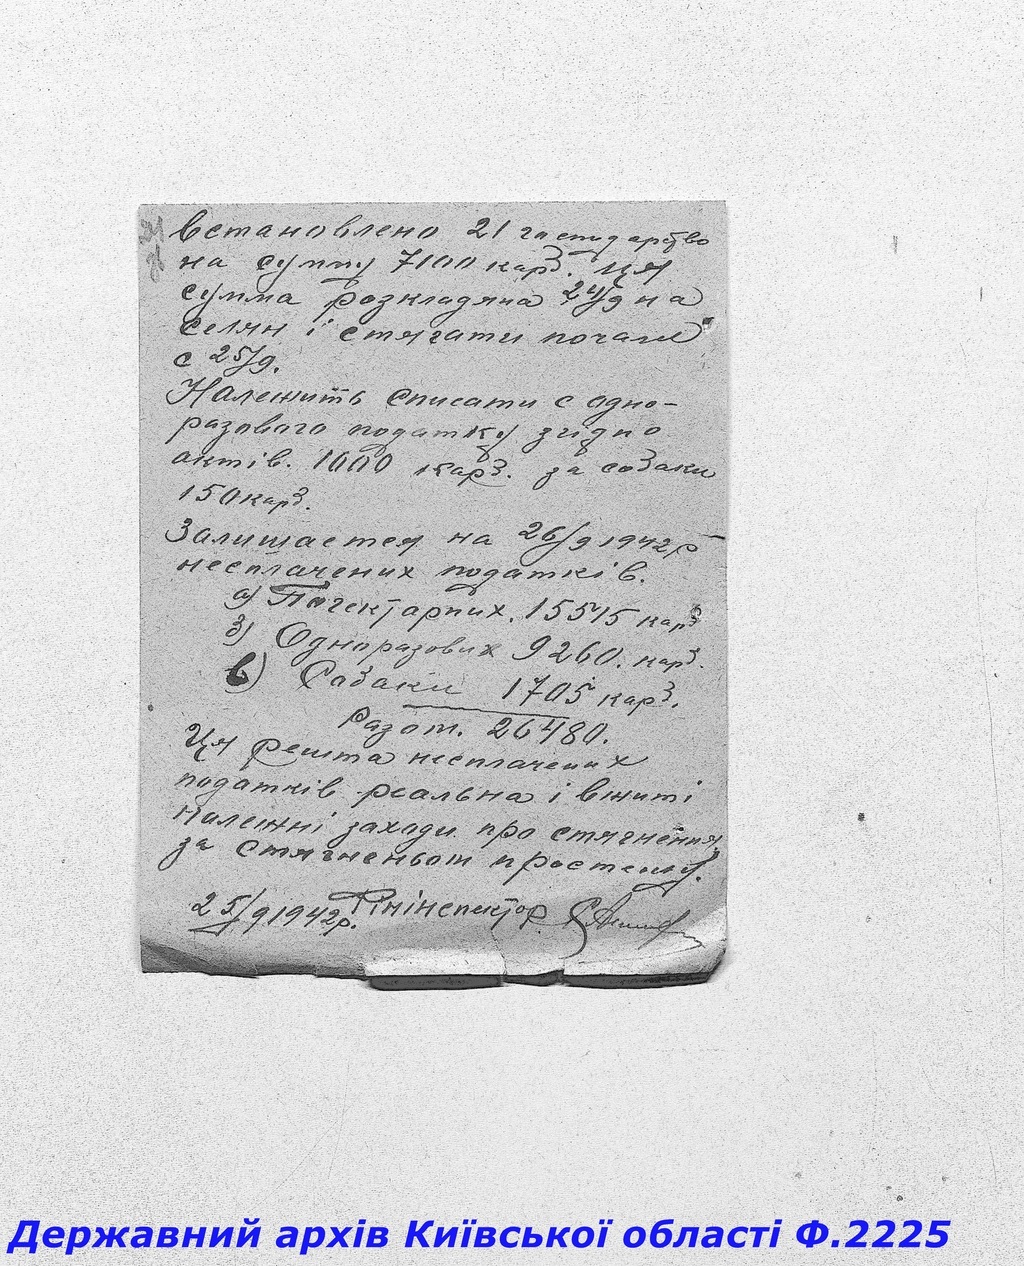 встановлено 21 господарство
на сумму 7100 карб. Ця
сумма розкладяна 24/9 на
селян і стягати почали
с 25/9.
Належить списати с одно-
разового податку згідно
актів. 1000 карб. за собаки
150 карб.
Залишается на 26/9 1942р
несплачених податків.
а) Погектарних. 15515 карб
б) Одноразових 9260. карб.
в) Собаки 1705 карб.
Разом. 26480.
Ця решта несплачених
податків реальна і вжиті
належні заходи про стягнення
за стягненьом простешу.
25/9 1942р. Фінінспектор
Державний архів Київської області Ф.2225